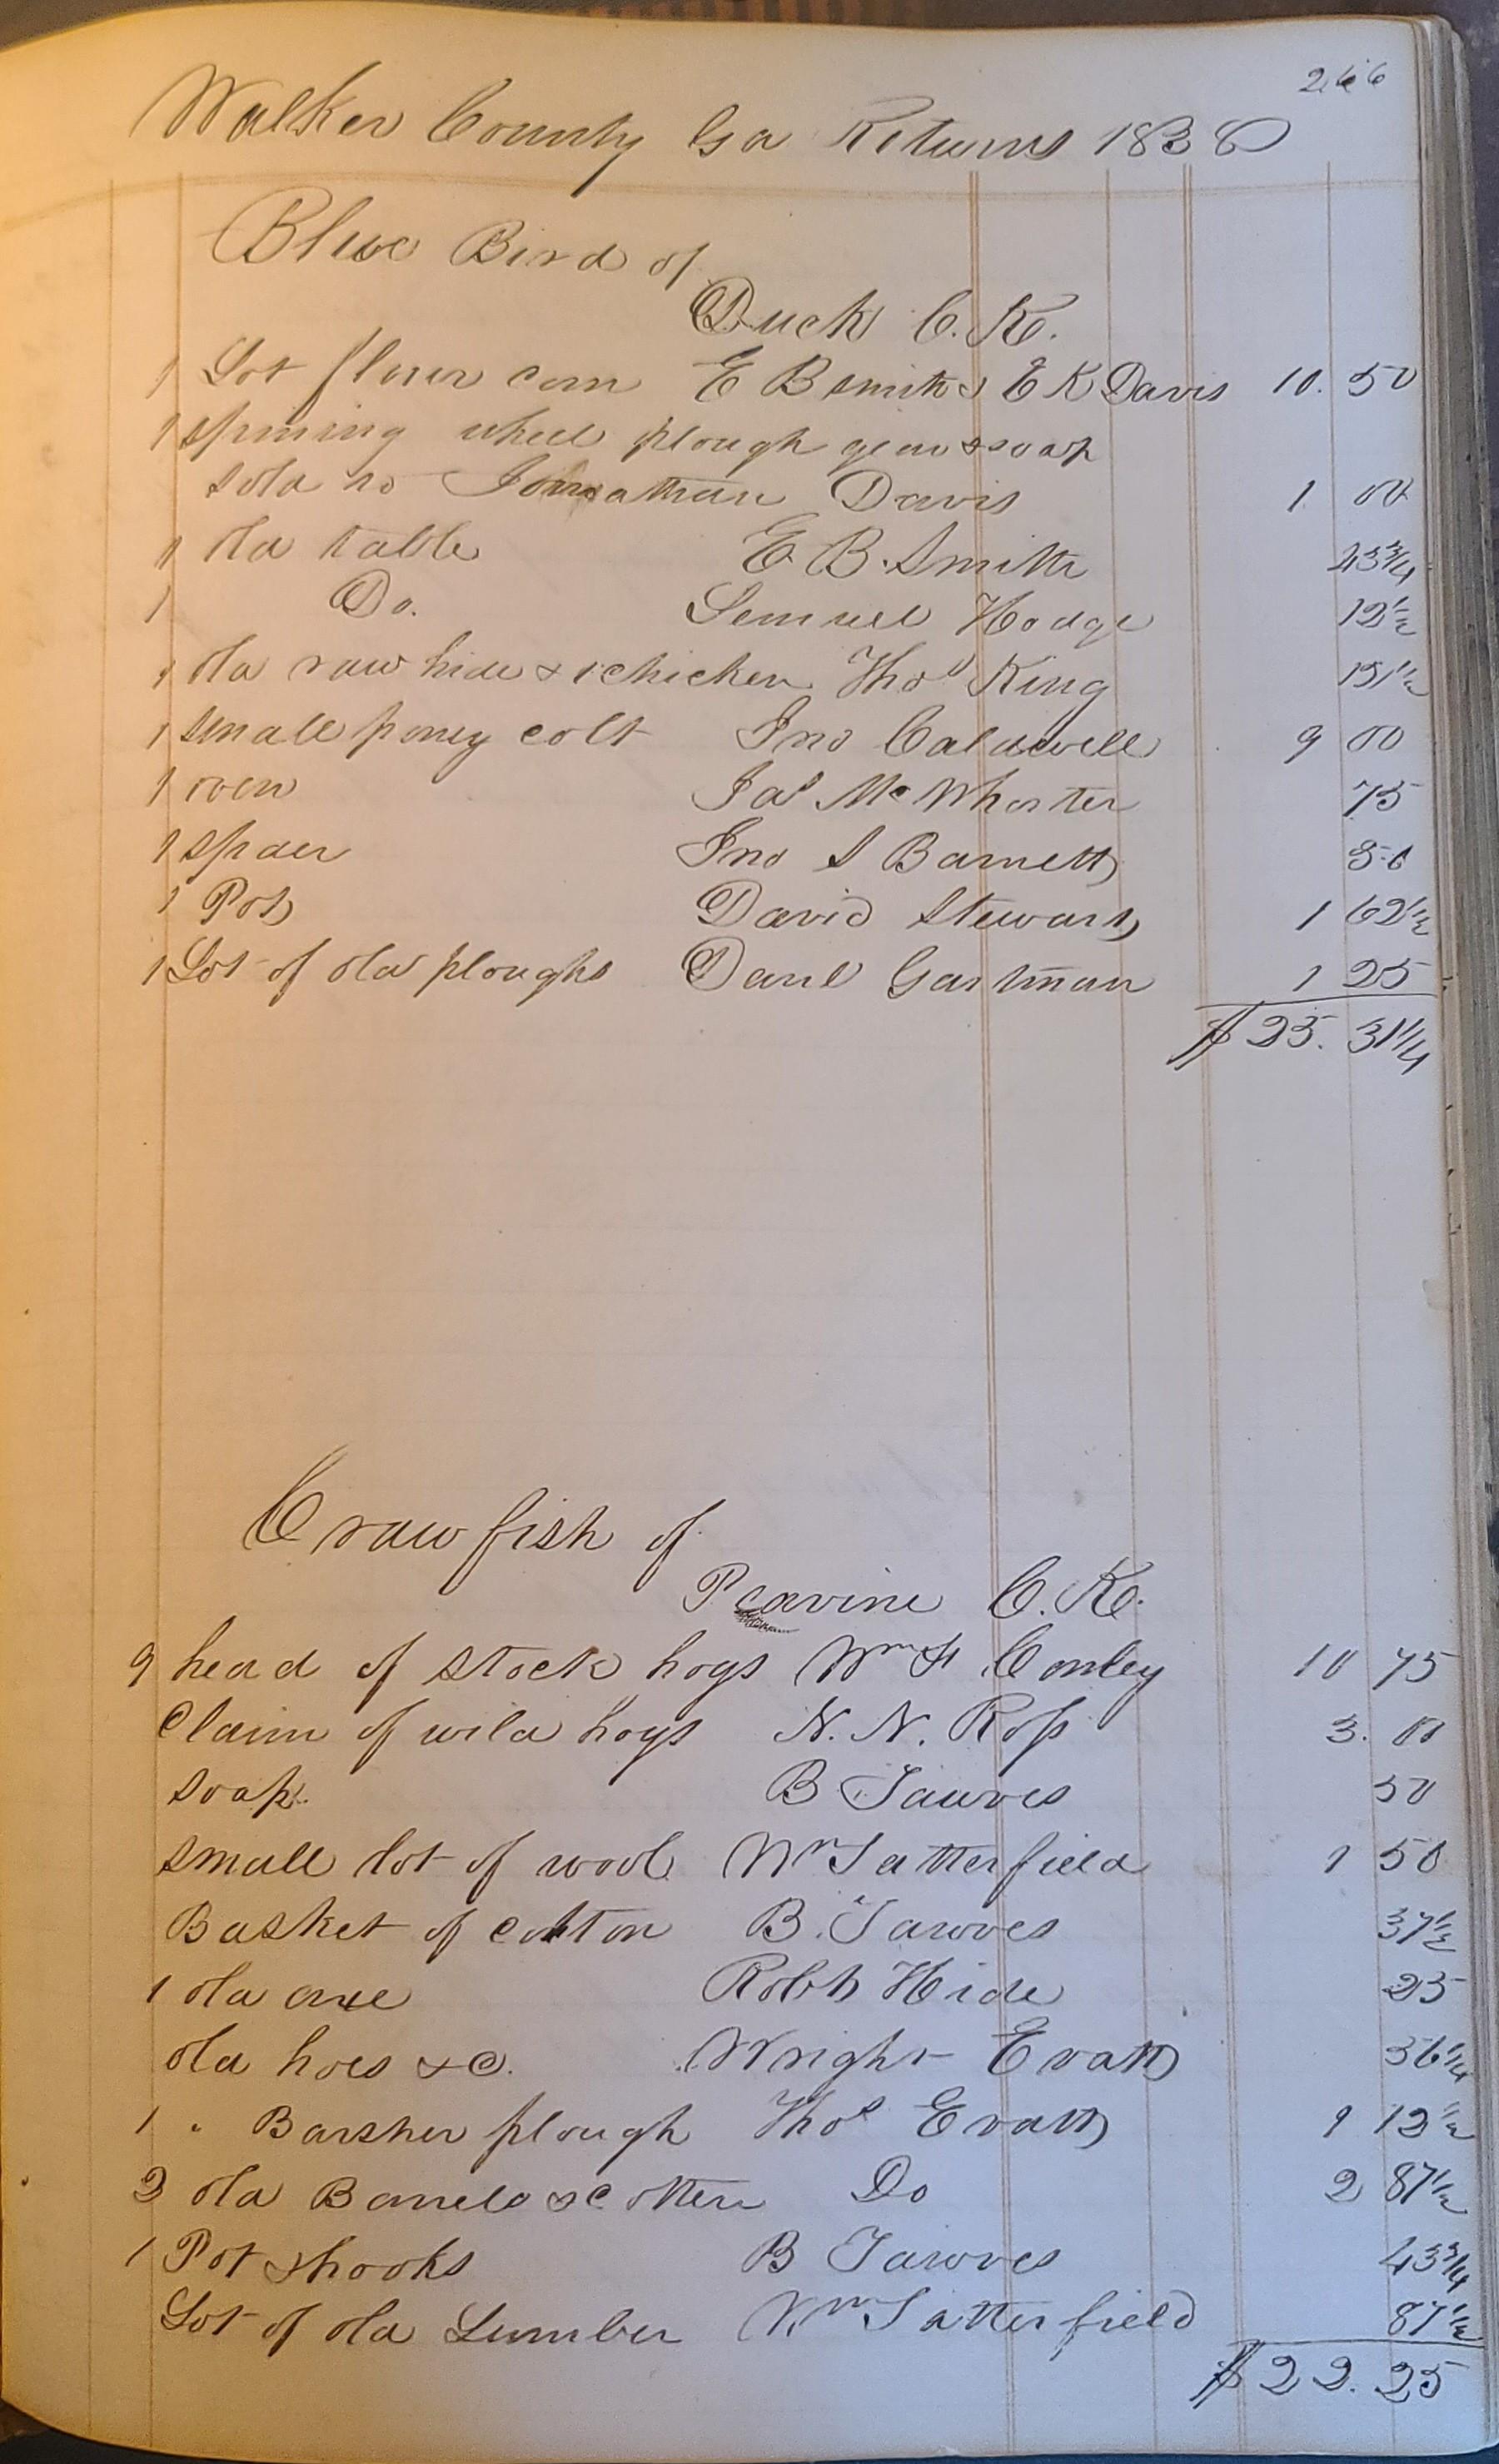 266
Walker County Ga Returns 1838
Blue Bird of
Duck C. K.
1 Lot flour corn E B Smith & E K Davis 10. 50
1 spining wheel plough gear & soap
sold to Jonathan Davis 1 00
1 old table E. B. Smith 43 3/4
1 Do. Lemuel Hodge 12 1/2
1 old raw hide & 1 chicken Thos King 12 1/2
1 small poney colt Jno Caldwell 9 00
1 oven Jas McWhorter 75
1 spider Jno S Barnett 50
1 Pot David Stewart 1 62 1/2
1 Lot of old ploughs Danl Gartman 1 25
$ 25. 31 1/4
Craw fish of
Peavine C. K.
9 head of stock hogs Wm H Conley 10 75
Claim of wild hogs N. N. Ross 3. 00
soap. B Tawves 50
small lot of wool Wm Satterfield 1 50
Basket of cotton B. Tawves 37 1/2
1 old axe Robt Hide 25
old hoes &C. Wright Evatt 56 1/4
1 " Barsher plough Thos Evatt 1 12 1/2
3 old Barrels & cotten Do 2 87 1/2
1 Pot & hooks B Tawves 43 3/4
Lot of old Lumber Wm Satterfield 87 1/2
$ 22. 25